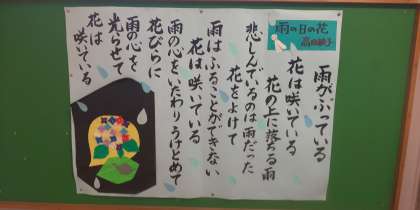 雨の日の花
高田敏子
雨がふっている
花は咲いている
花の上に落ちる雨
悲しんでいるのは雨だった
花をよけて
雨はふることができない
花は咲いている
雨の心をいたわりうけとめて
花びらに
雨の心を
光らせて
花は
咲いている